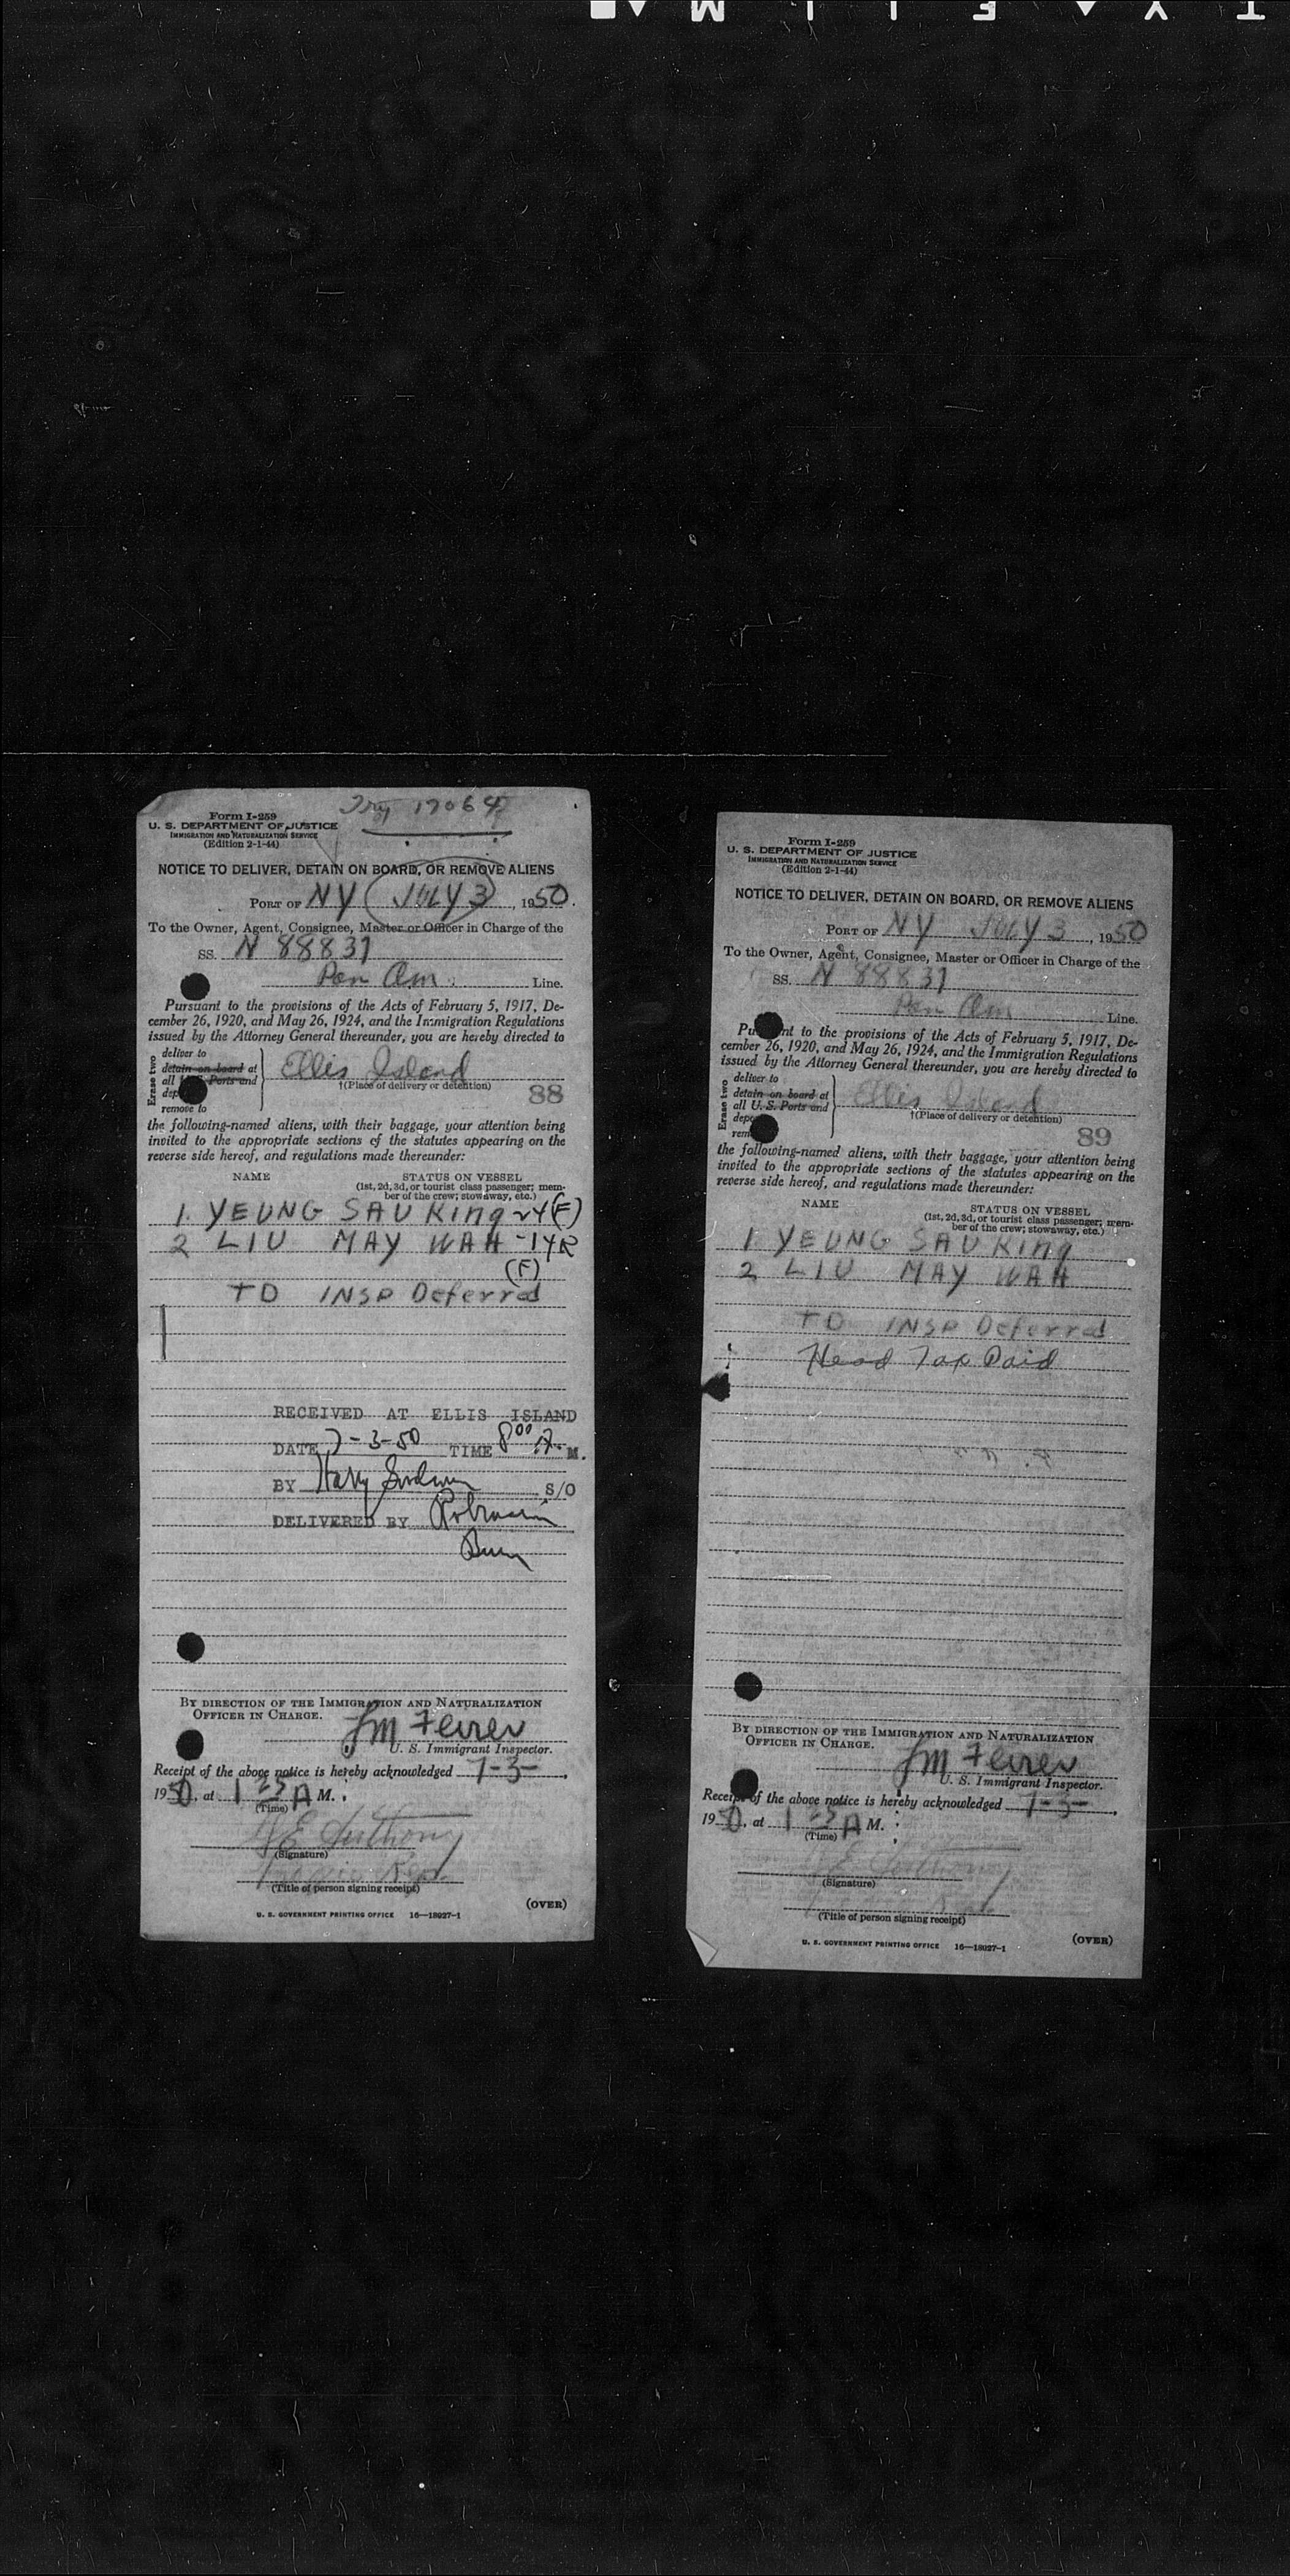 Form I-259
U. S. DEPARTMENT OF JUSTICE
IMMIGRATION AND NATURALIZATION SERVICE
(Edition 2-1-44)
17064
NOTICE TO DELIVER, DETAIN ON BOARD, OR REMOVE ALIENS
PORT OF NY JULY 3, 1950.
To the Owner, Agent, Consignee, Master or Officer in Charge of the
SS. N 88837
Pan Am Line.
Pursuant to the provisions of the Acts of February 5, 1917, De-
cember 26, 1920, and May 26, 1924, and the Immigration Regulations
issued by the Attorney General thereunder, you are hereby directed to
Erase two
deliver to
detain on board at
all U. S. Ports and
remove to
Ellis Island
†(Place of delivery or detention)
88
the following-named aliens, with their baggage, your attention being
invited to the appropriate sections of the statutes appearing on the
reverse side hereof, and regulations made thereunder:
NAME STATUS ON VESSEL
(1st, 2d, 3d, or tourist class passenger; mem-
ber of the crew; stowaway, etc.)
1. YEUNG SAU King 24 (F)
2 LIU MAY WAH -14
(F)
TD INSP Deferred
RECEIVED AT ELLIS ISLAND
DATE 7-3-50 TIME 8 00 A. M.
BY Harry S/O
DELIVERED BY Robinson
BY DIRECTION OF THE IMMIGRATION AND NATURALIZATION
OFFICER IN CHARGE.
U. S. Immigrant Inspector.
Receipt of the above notice is hereby acknowledged 7-3-,
1950, at 1 A M.
(Time)
(Signature)
(Title of person signing receipt)
(OVER)
U. S. GOVERNMENT PRINTING OFFICE 16—18027-1
Form I-259
U. S. DEPARTMENT OF JUSTICE
IMMIGRATION AND NATURALIZATION SERVICE
(Edition 2-1-44)
NOTICE TO DELIVER, DETAIN ON BOARD, OR REMOVE ALIENS
PORT OF NY JULY 3, 1950
To the Owner, Agent, Consignee, Master or Officer in Charge of the
SS. N 88837
Pan Am Line.
Pursuant to the provisions of the Acts of February 5, 1917, De-
cember 26, 1920, and May 26, 1924, and the Immigration Regulations
issued by the Attorney General thereunder, you are hereby directed to
Erase two
deliver to
detain on board at
all U. S. Ports and
Ellis Island
†(Place of delivery or detention)
89
the following-named aliens, with their baggage, your attention being
invited to the appropriate sections of the statutes appearing on the
reverse side hereof, and regulations made thereunder:
NAME STATUS ON VESSEL
(1st, 2d, 3d, or tourist class passenger; mem-
ber of the crew; stowaway, etc.)
1 YEUNG SAU King
2 LIU MAY WAH
TD INSP Deferred
Head Tax Paid
BY DIRECTION OF THE IMMIGRATION AND NATURALIZATION
OFFICER IN CHARGE.
U. S. Immigrant Inspector.
Receipt of the above notice is hereby acknowledged 7-3-,
1950, at 1 A M.
(Time)
(Signature)
(Title of person signing receipt)
(OVER)
U. S. GOVERNMENT PRINTING OFFICE 16—18027-1